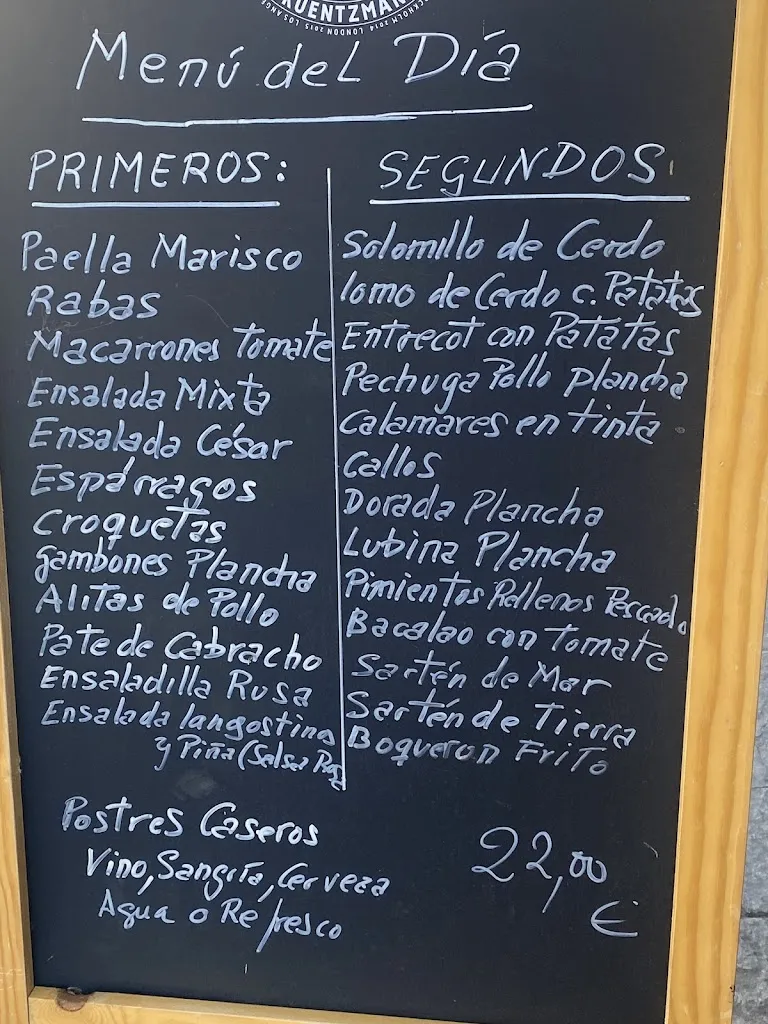 KUENTZMAN
STOCKHOLM 2014 LONDON 2015 LOS ANGE
Menú del Día
PRIMEROS:
Paella Marisco
Rabas
Macarrones Tomate
Ensalada Mixta
Ensalada César
Espárragos
Croquetas
Gambones Plancha
Alitas de Pollo
Pate de Cabracho
Ensaladilla Rusa
Ensalada langostinos
y Piña (Salsa
SEGUNDOS
Solomillo de Cerdo
lomo de Cerdo c. Patatas
Entrecot con Patatas
Pechuga Pollo plancha
Calamares en tinta
Callos
Dorada Plancha
Lubina Plancha
Pimientos Rellenos Pescado
Bacalao con Tomate
Sartén de Mar
Sartén de Tierra
Boqueron Frito
Postres Caseros
Vino, Sangría, Cerveza
Agua o Refresco
22,00
€